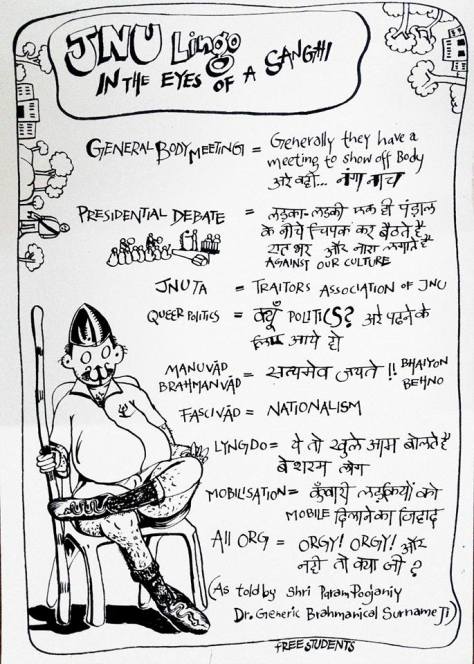 JNU Lingo
IN THE EYES OF A SANGHI
GENERAL BODY MEETING = Generally they have a
meeting to show off Body
अरे वही... नंगा नाच
PRESIDENTIAL DEBATE = लड़का-लड़की एक ही पंडाल
के नीचे चिपक कर बैठते हैं
रात भर और नारा लगाते हैं
AGAINST OUR CULTURE
JNUTA = TRAITORS ASSOCIATION OF JNU
QUEER POLITICS = क्यूँ POLITICS? अरे पढने के
लिए आये हो
MANUVĀD
BRAHMANVĀD = सत्यमेव जयते !! BHAIYON
BEHNO
FASCIVĀD = NATIONALISM
LYNGDO = ये तो खुले आम बोलते है
बेशरम लोग
MOBILISATION = कुँवारी लड़कियों को
MOBILE दिलाने का जिहाद
All ORG = ORGY! ORGY! और
नही तो क्या जी?
(As told by Shri Param Poojaniy
Dr. Generic Brahmanical Surname Ji)
fREE STUDENTS